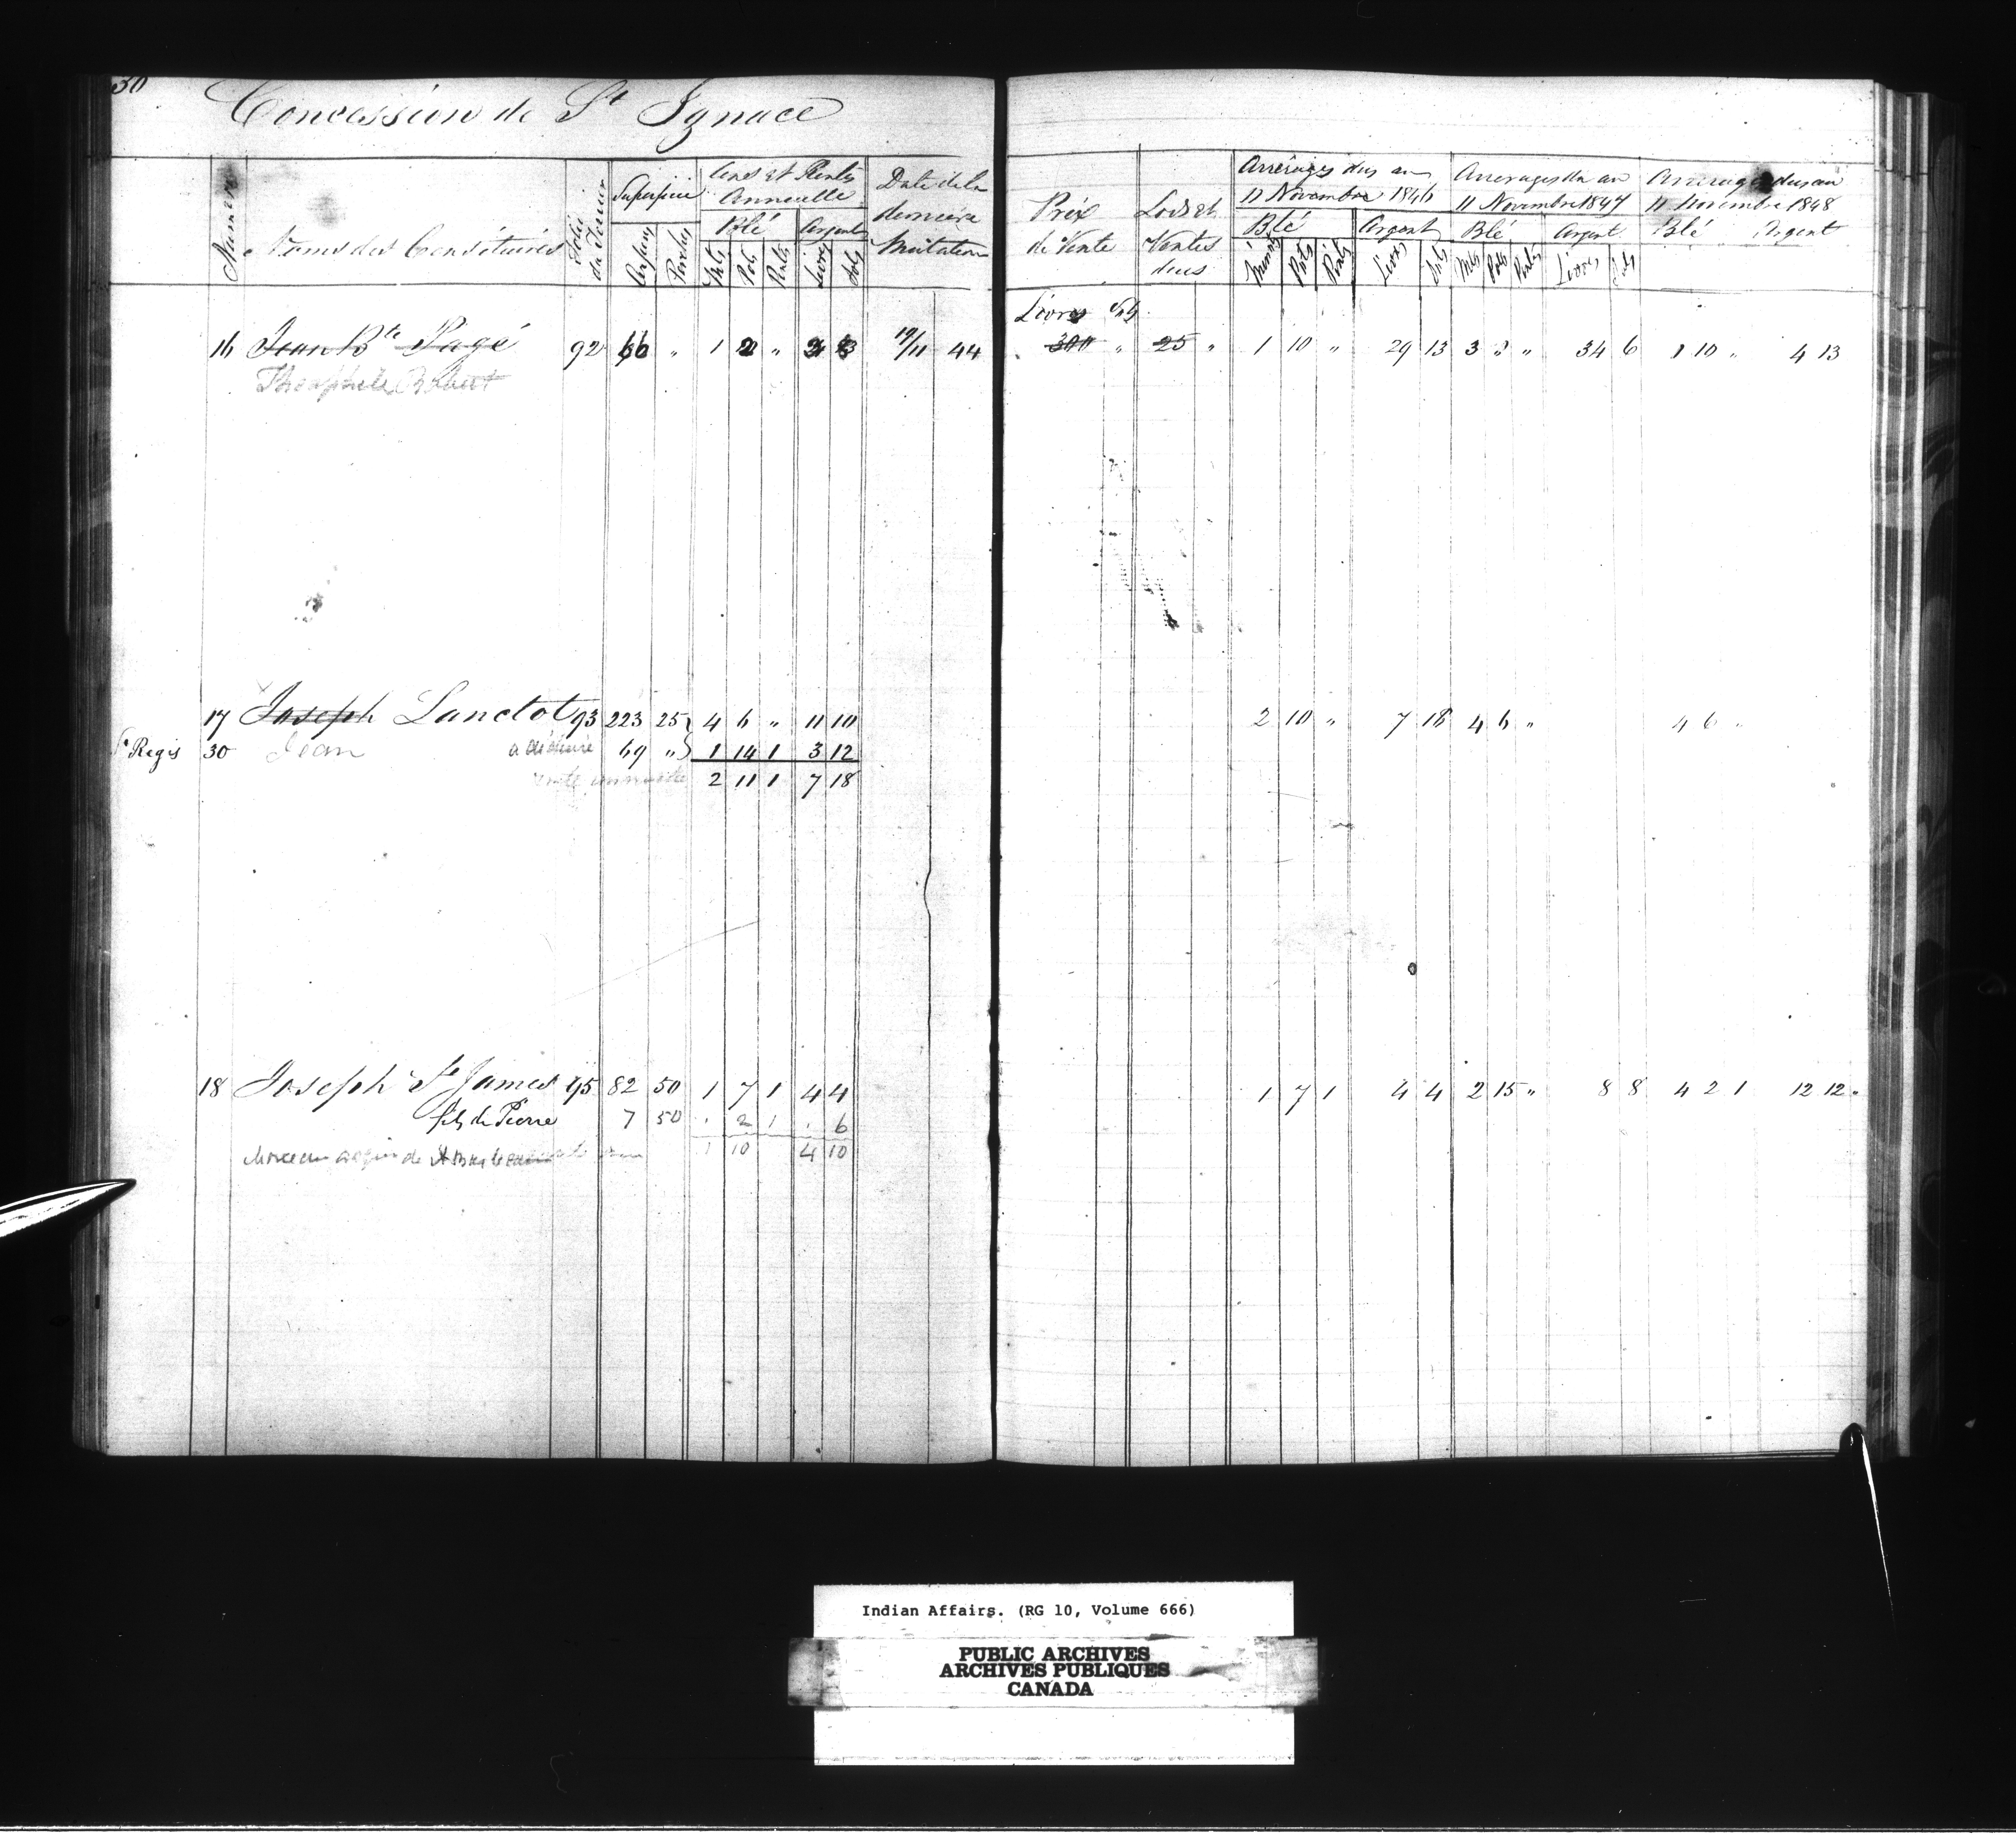 30
Concession de St Ignace
Numero
Noms des Censitaires
Folio du Terrier
Superficie
Arpens
Perches
Cens et Rentes Annuelle
Blé
Argent
Mts
Pots
Pints
Livres
Sols
Date de la derniere Mutation
Prix de Vente
Lods et Ventes deus
Arrérages dus au 11 Novembre 1846
Blé
Argent
Minots
Pots
Pints
Livres
Sols
Arrerages du au 11 Novembre 1847
Blé
Argent
Mts
Pots
Pintes
Livres
Sols
Arrerages dus au 11 Novembre 1848
Blé
Argent
Livres Sols
16 Jean Bte Pagé 92 66 " 1 2 " 3 8 19/11 44 300 " 25 " 1 10 " 29 13 3 3 " 34 6 1 10 " 4 13
Theophile Robert
17 Joseph Lanctot 93 223 25 4 6 " 11 10 2 10 " 7 18 4 6 " 4 6 "
St Regis 30 Jean a déduire 69 " 1 14 1 3 12
rente annuelle 2 11 1 7 18
18 Joseph St James 95 82 50 1 7 1 4 4 1 7 1 4 4 2 15 " 8 8 4 2 1 12 12
fils de Pierre 7 50 . 2 1 . 6
Morceau acquis de 1 10 4 10
Indian Affairs. (RG 10, Volume 666)
PUBLIC ARCHIVES
ARCHIVES PUBLIQUES
CANADA